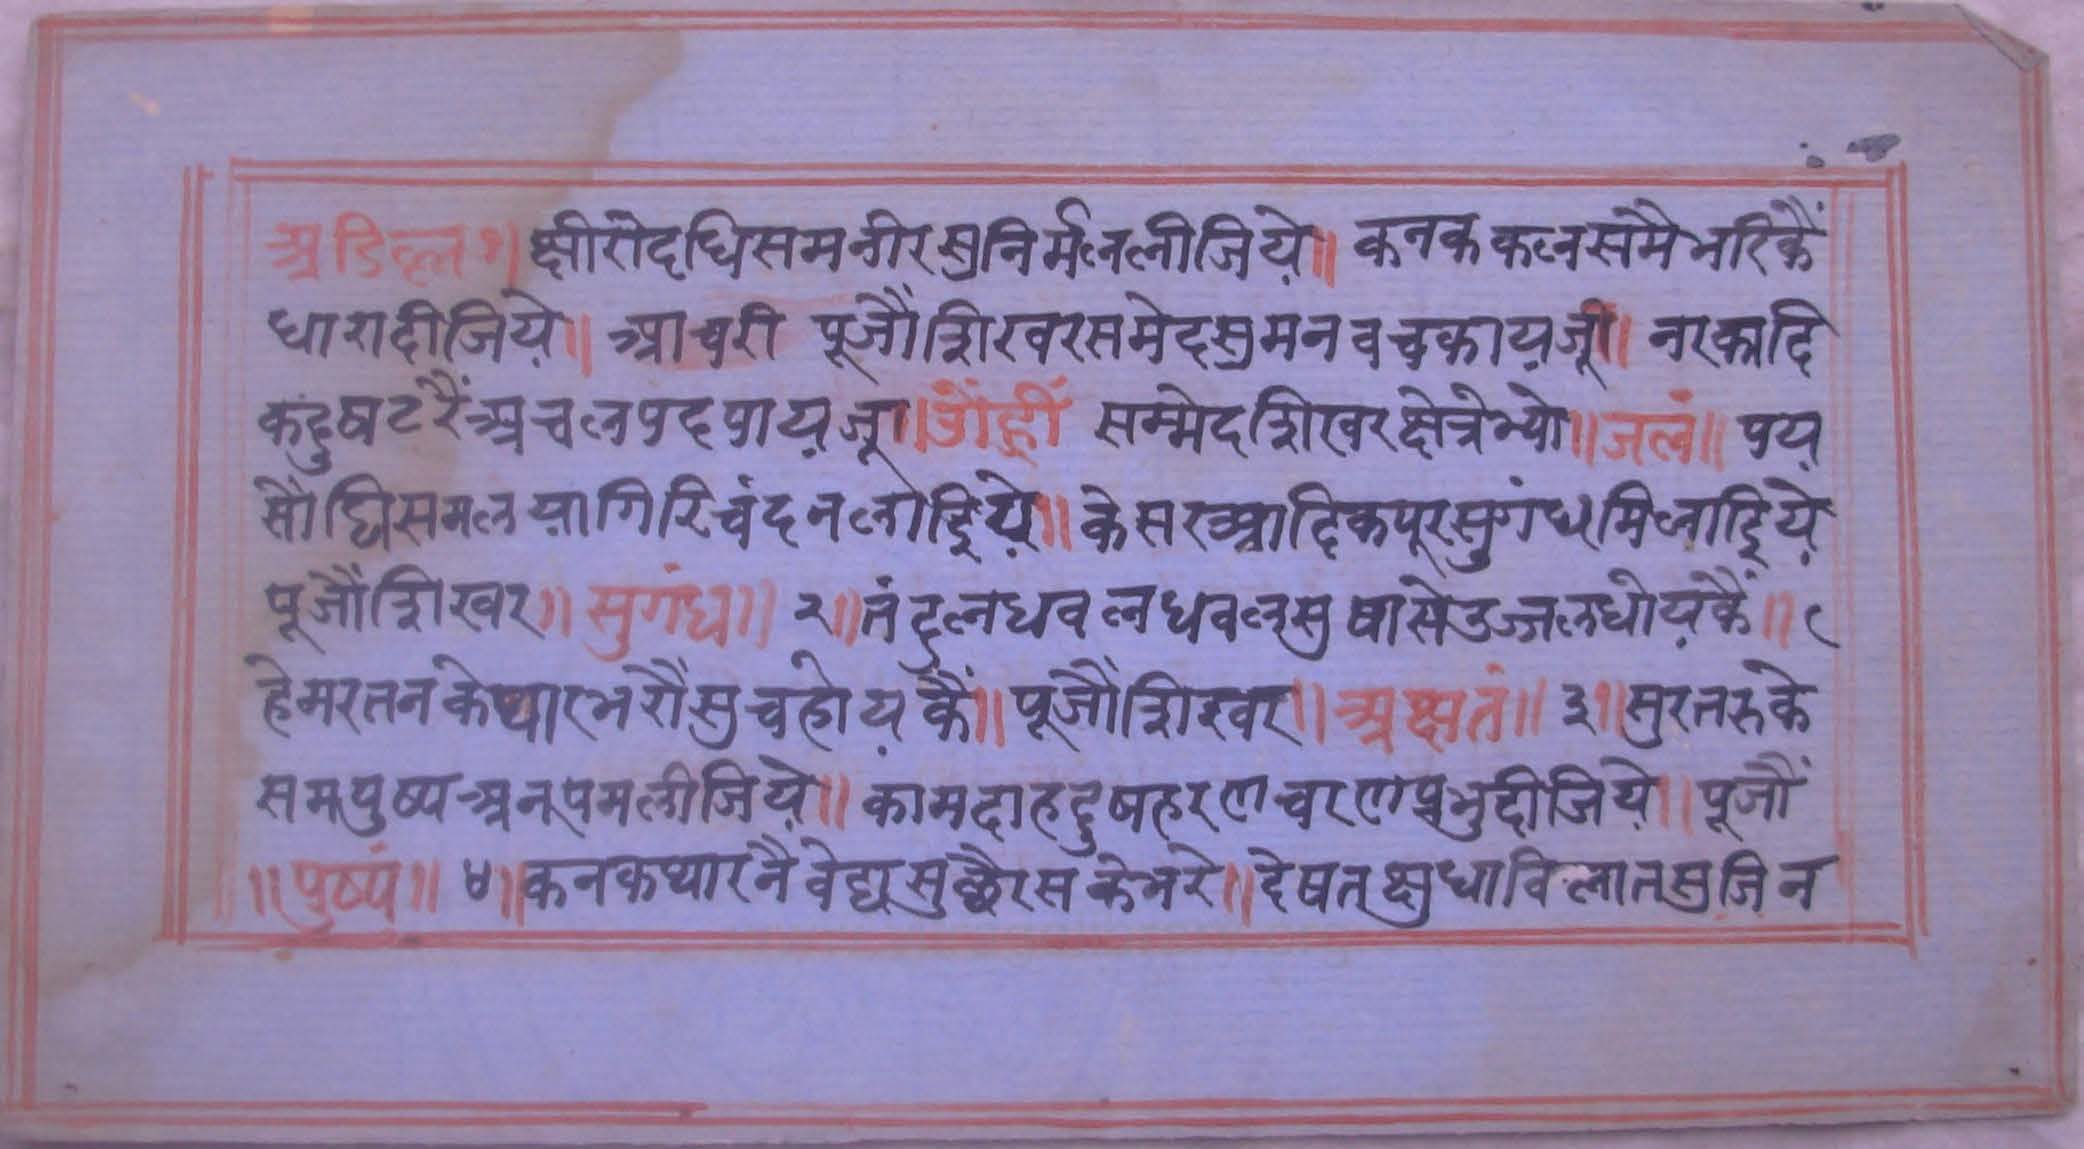 अडिल्ल१। क्षीरोदधिसमनीरसुनिर्मललीजिये॥ कनक कलससमैभरिकैं
धारादीजिये॥ आचरी पूजौंशिखरसमेदसुमनवचकायजू॥ नरकादि
कदुषटरैंअचलपदपायजू॥ ओंह्रीं सम्मेदशिखरक्षेत्रेभ्यो॥जलं॥ पय
सोंघिसमलयागिरिचंदनलोईये॥ केसरआदिकपूरसुगंधमिलाईये
पूजौंशिखर॥ सुगंधं॥ २॥तंदूलधवलधवलसुषासेउज्जलधोयकैं॥
हेमरतनकेथारभरौंसुचहोयकैं॥ पूजौंशिखर॥ अक्षतं॥ ३॥सुरतरुके
समपुष्पअनूपमलीजिये॥ कामदाहदुषहरणचरणप्रभुदीजिये॥ पूजौं
॥पुष्पं॥ ४॥कनकथारनैवेद्यसु रसकेभरे॥ देषतक्षुधाविलातसुजिन